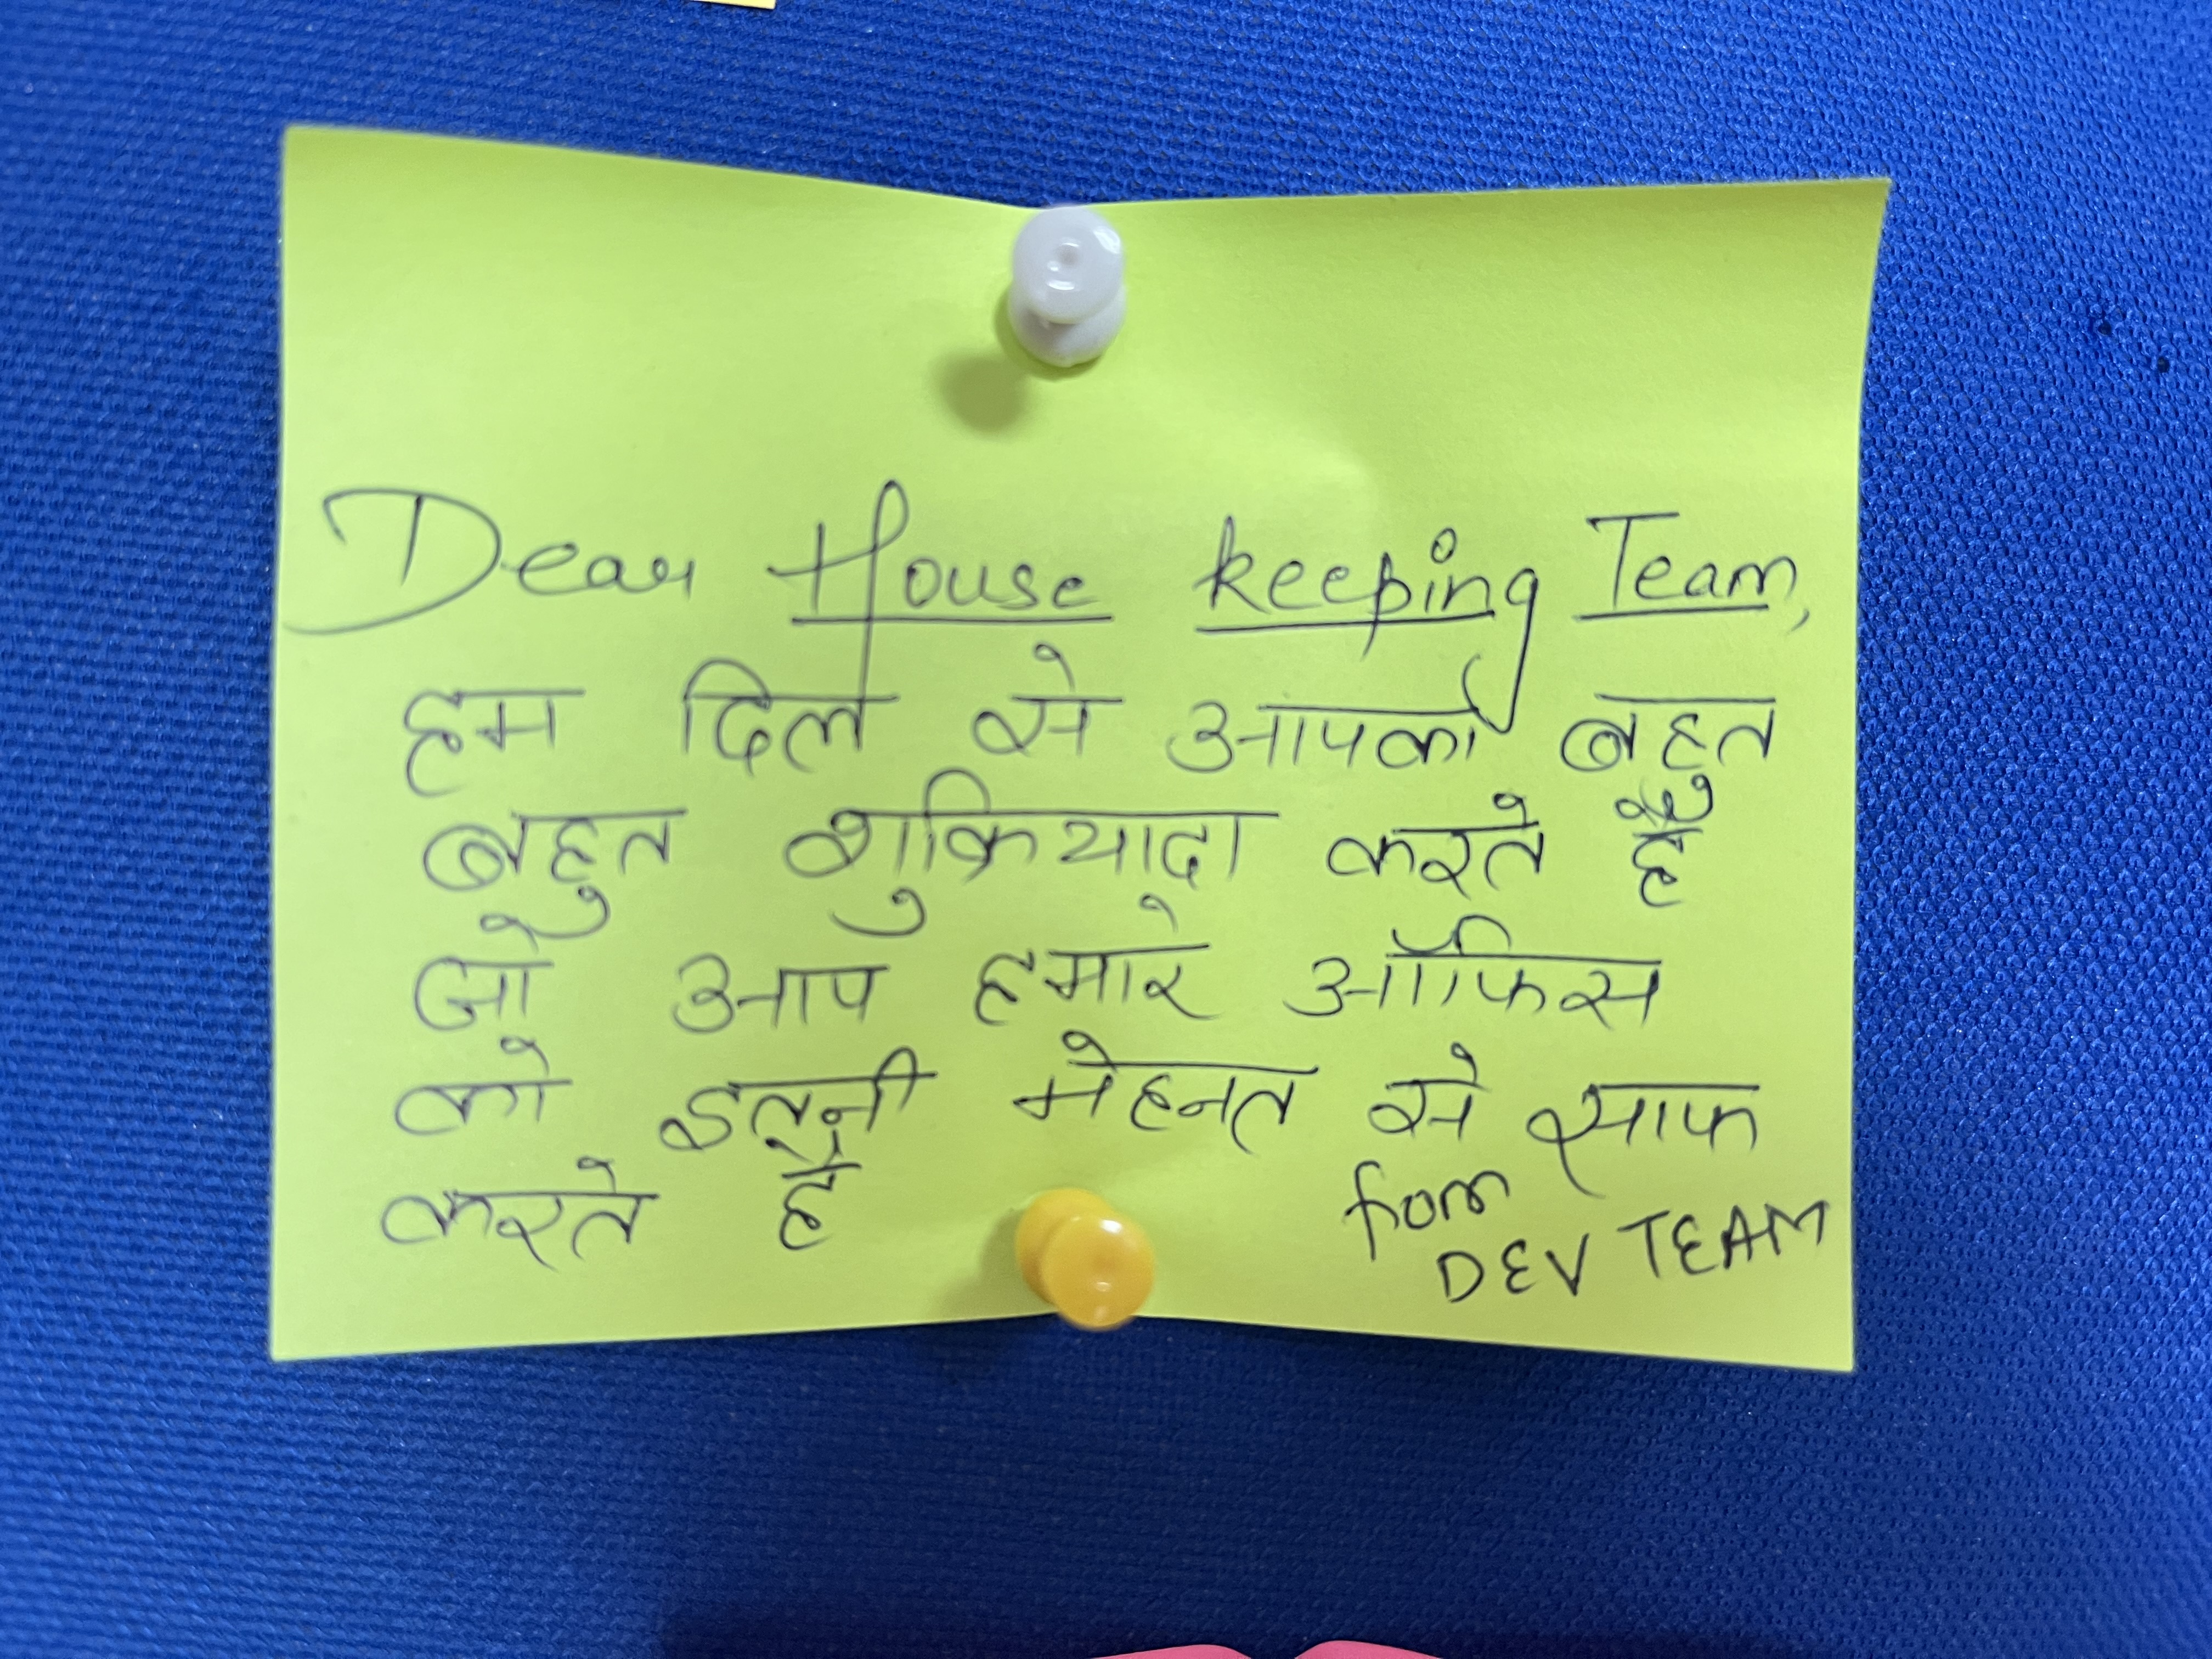 Dear House keeping Team,
हम दिल से आपका बहुत
बहुत शुक्रियादा करते है
जो आप हमारे ऑफिस
को इतनी मेहनत से साफ
करते है
from
DEV TEAM